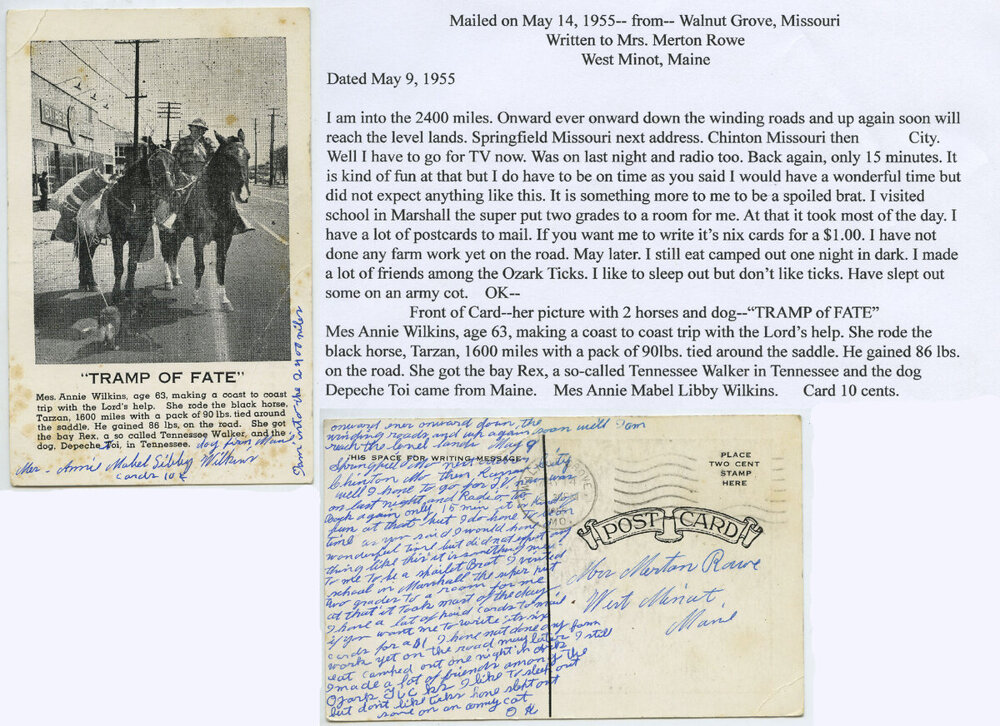 "TRAMP OF FATE"
Mes. Annie Wilkins, age 63, making a coast to coast
trip with the Lord's help. She rode the black horse,
Tarzan, 1600 miles with a pack of 90 lbs. tied around
the saddle. He gained 86 lbs, on the road. She got
the bay Rex, a so called Tennessee Walker, and the
dog, Depeche Toi, in Tennessee. dog from Maine
Mes - Annie Mabel Libby Wilkins
cards 10¢
I am into the 2400 miles
Mailed on May 14, 1955-- from-- Walnut Grove, Missouri
Written to Mrs. Merton Rowe
West Minot, Maine
Dated May 9, 1955
I am into the 2400 miles. Onward ever onward down the winding roads and up again soon will
reach the level lands. Springfield Missouri next address. Chinton Missouri then City.
Well I have to go for TV now. Was on last night and radio too. Back again, only 15 minutes. It
is kind of fun at that but I do have to be on time as you said I would have a wonderful time but
did not expect anything like this. It is something more to me to be a spoiled brat. I visited
school in Marshall the super put two grades to a room for me. At that it took most of the day. I
have a lot of postcards to mail. If you want me to write it's nix cards for a $1.00. I have not
done any farm work yet on the road. May later. I still eat camped out one night in dark. I made
a lot of friends among the Ozark Ticks. I like to sleep out but don't like ticks. Have slept out
some on an army cot. OK--
Front of Card--her picture with 2 horses and dog--"TRAMP OF FATE"
Mes Annie Wilkins, age 63, making a coast to coast trip with the Lord's help. She rode the
black horse, Tarzan, 1600 miles with a pack of 90lbs. tied around the saddle. He gained 86 lbs.
on the road. She got the bay Rex, a so-called Tennessee Walker in Tennessee and the dog
Depeche Toi came from Maine. Mes Annie Mabel Libby Wilkins. Card 10 cents.
onward ever onward down the
winding roads and up again soon will
reach the level lands May 9
THIS SPACE FOR WRITING MESSAGE
Springfield Mo next address
Chinton Mo then City
well I have to go for T.V. now was
on last night and Radio to
Back again only 15 min it is kind of
fun at that but I do have to be on
time as you said I would have
wonderful time but did not expect any
thing like this it is something more
to me to be a spoilet Brat I visited
school in Marshall the super put
two grades to a room for me
at that it took most of the day
I have a lot of cards to mail
if you want me to write its nix
cards for a $1 I have not done any farm
work yet on the road may later I still
eat camped out one night in dark
I made a lot of friends among the
Ozark I like to sleep out
but dont like ticks have slept out
some on an army cot
O K
PLACE
TWO CENT
STAMP
HERE
POST CARD
Mrs Merton Rowe
West Minot
Maine